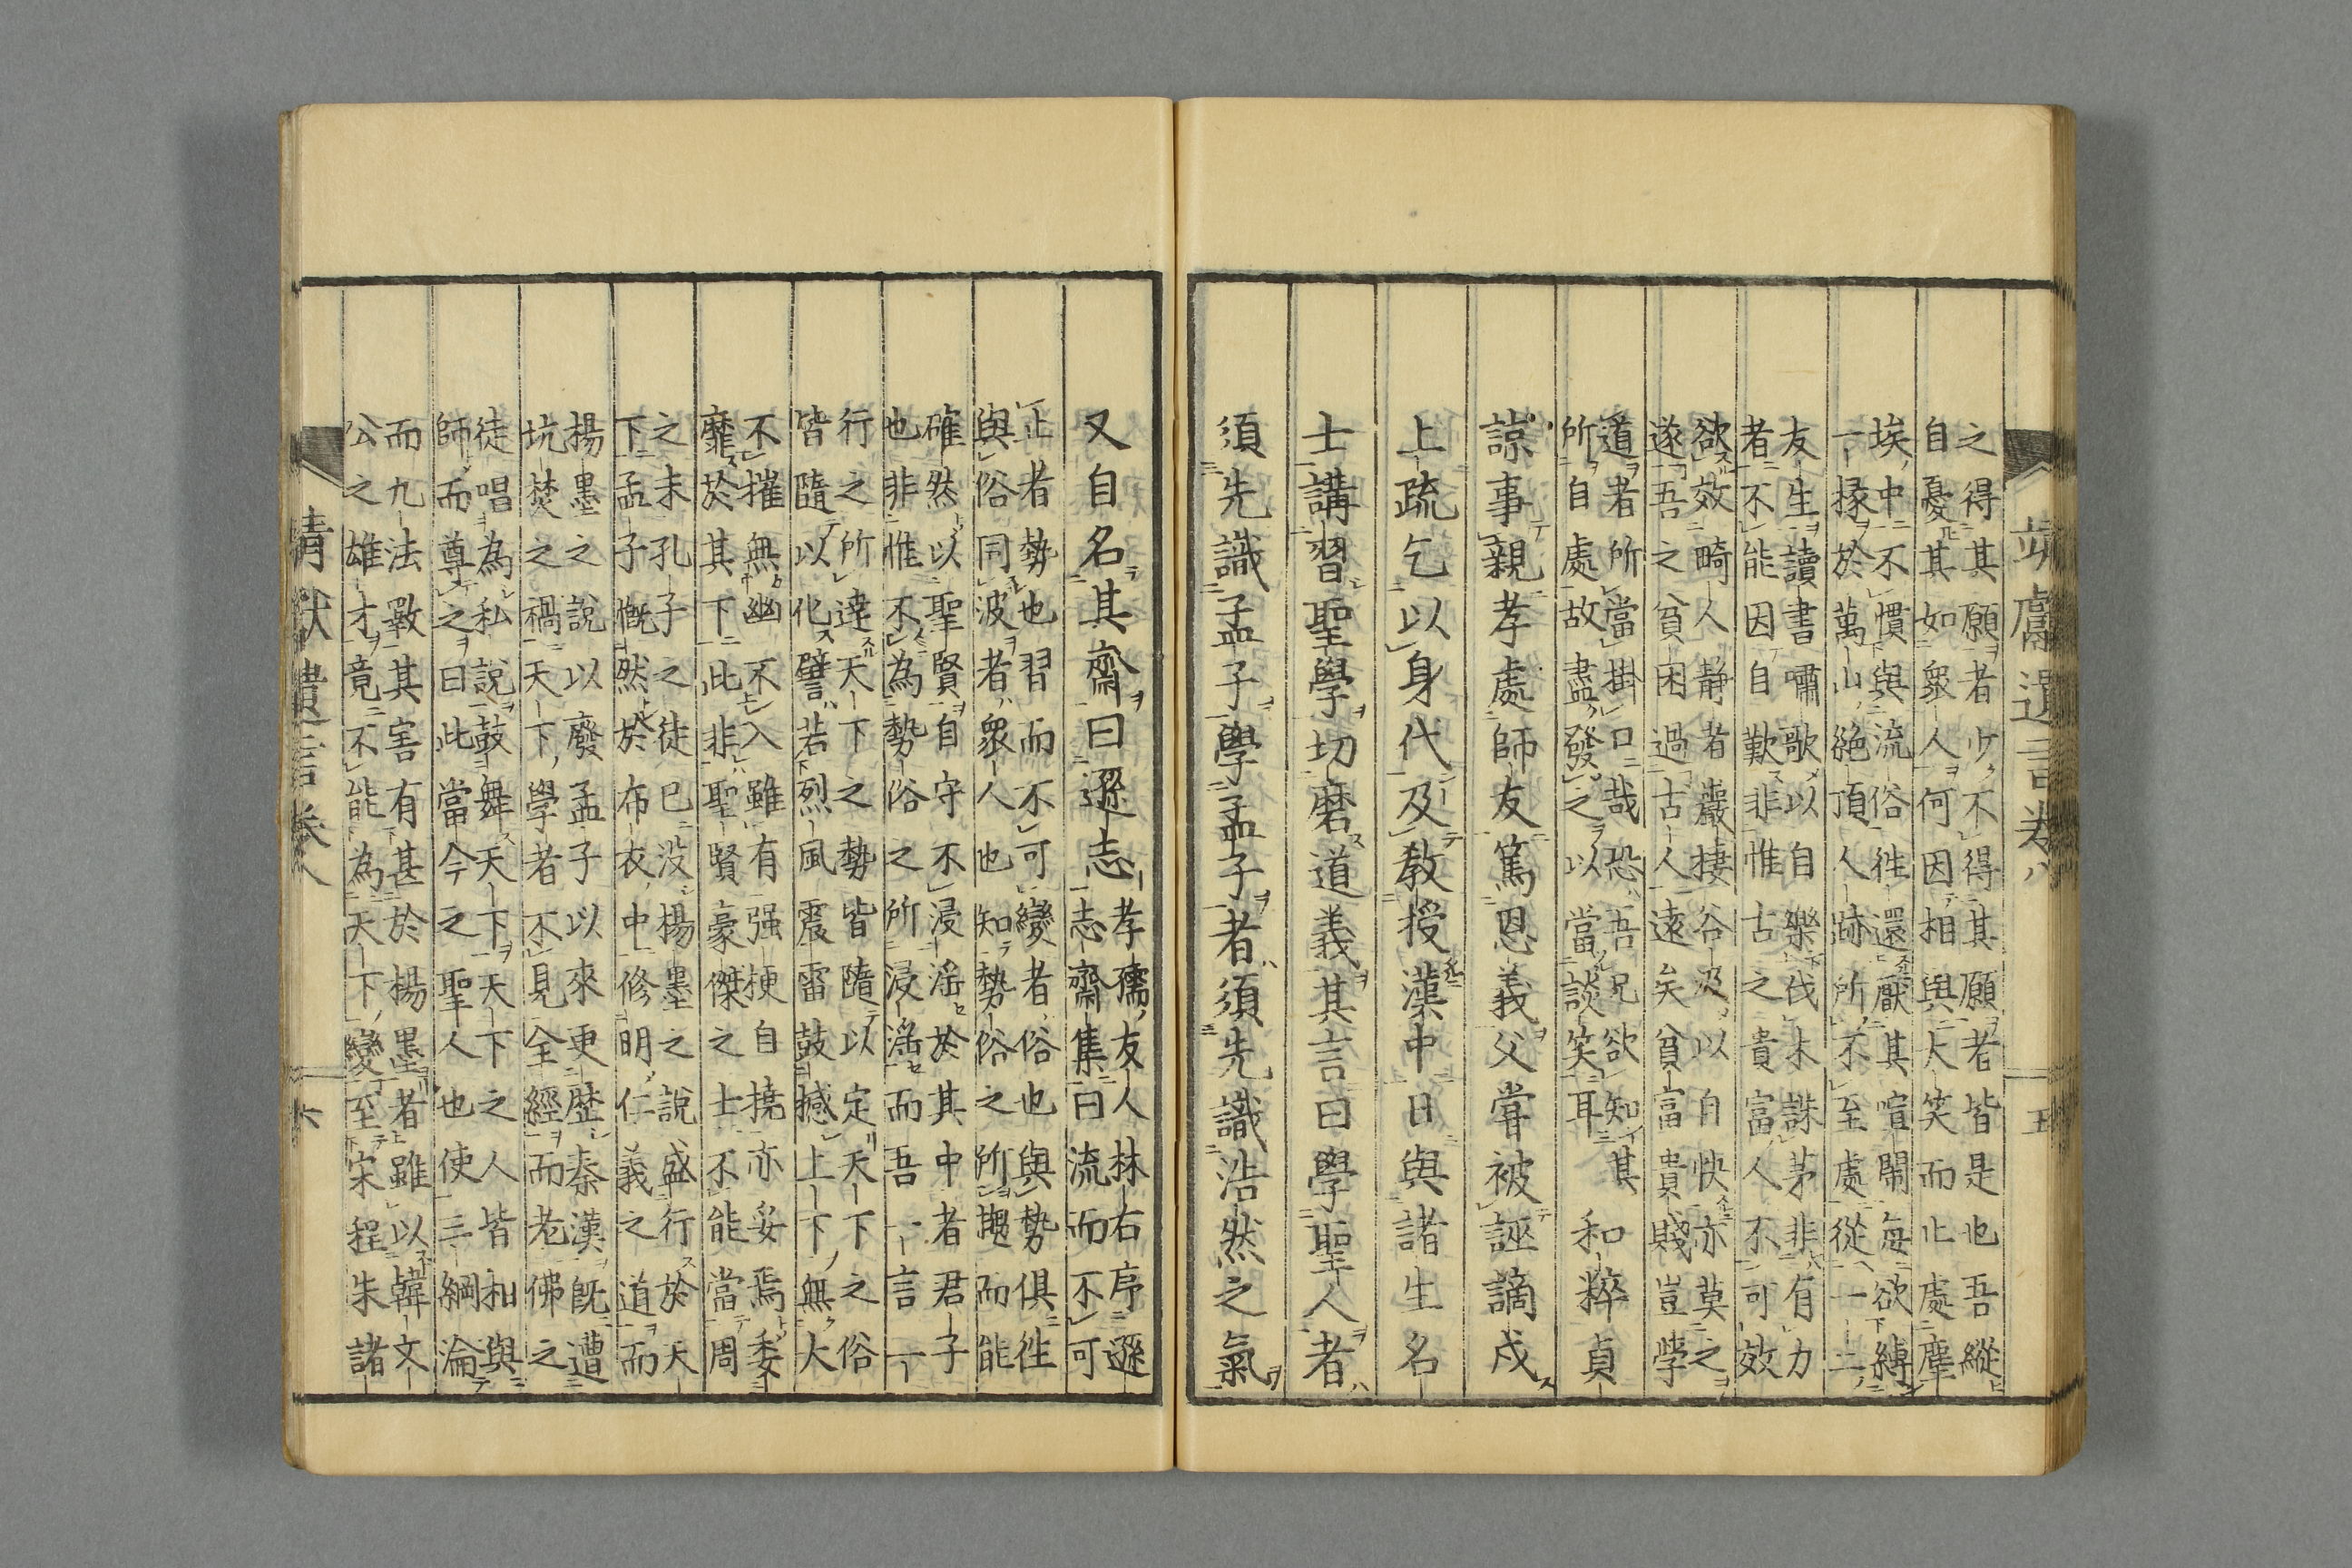 靖獻遺言卷八 五
之得其願者少不得其願者皆是也吾縱
自憂其如衆人何因相與大笑而止處塵
埃中不慣與流俗徃還厭其喧鬧每欲縛
一椽於萬山絶頂人跡所不至處從一二
友生讀書嘯歌以自樂伐木誅茅非有力
者不能因自歎非惟古之貴富人不可效
欲效畸人静者巖棲谷汲以自快亦莫之
遂吾之貧困過古人遠矣貧富貴賤豈學
道者所當掛口哉恐吾兄欲知其
所自處故盡發之以當談笑耳
和粹貞
諒事親孝處師友篤恩義父嘗被誣謫戍
上疏乞以身代及教授漢中日與諸生名
士講習聖學切磨道義其言曰學聖人者
須先識孟子學孟子者須先識浩然之氣
又自名其齋曰遜志
孝孺友人林右序遜
志齋集曰流而不可
正者勢也習而不可變者俗也與勢俱徃
與俗同波者衆人也知勢俗之所趨而能
確然以聖賢自守不浸淫於其中者君子
也非惟不為勢俗之所浸淫而吾一言一
行之所逹天下之勢皆隨以定天下之俗
皆隨以化譬若烈風震雷鼓撼上下無大
不摧無幽不入雖有强梗自撓亦妥焉委
靡於其下此非聖賢豪傑之士不能當周
之末孔子之徒已没揚墨之說盛行於天
下孟子慨然於布衣中修明仁義之道而
揚墨之說以廢孟子以來更歴秦漢既遭
坑焚之禍天下學者不見全經而老佛之
徒唱為私說鼓舞天下天下之人皆相與
師而尊之曰此當今之聖人也使三綱淪
而九法斁其害有甚於楊墨者雖以韓文
公之雄才竟不能為天下變至宋程朱諸
靖獻遺言卷八 六